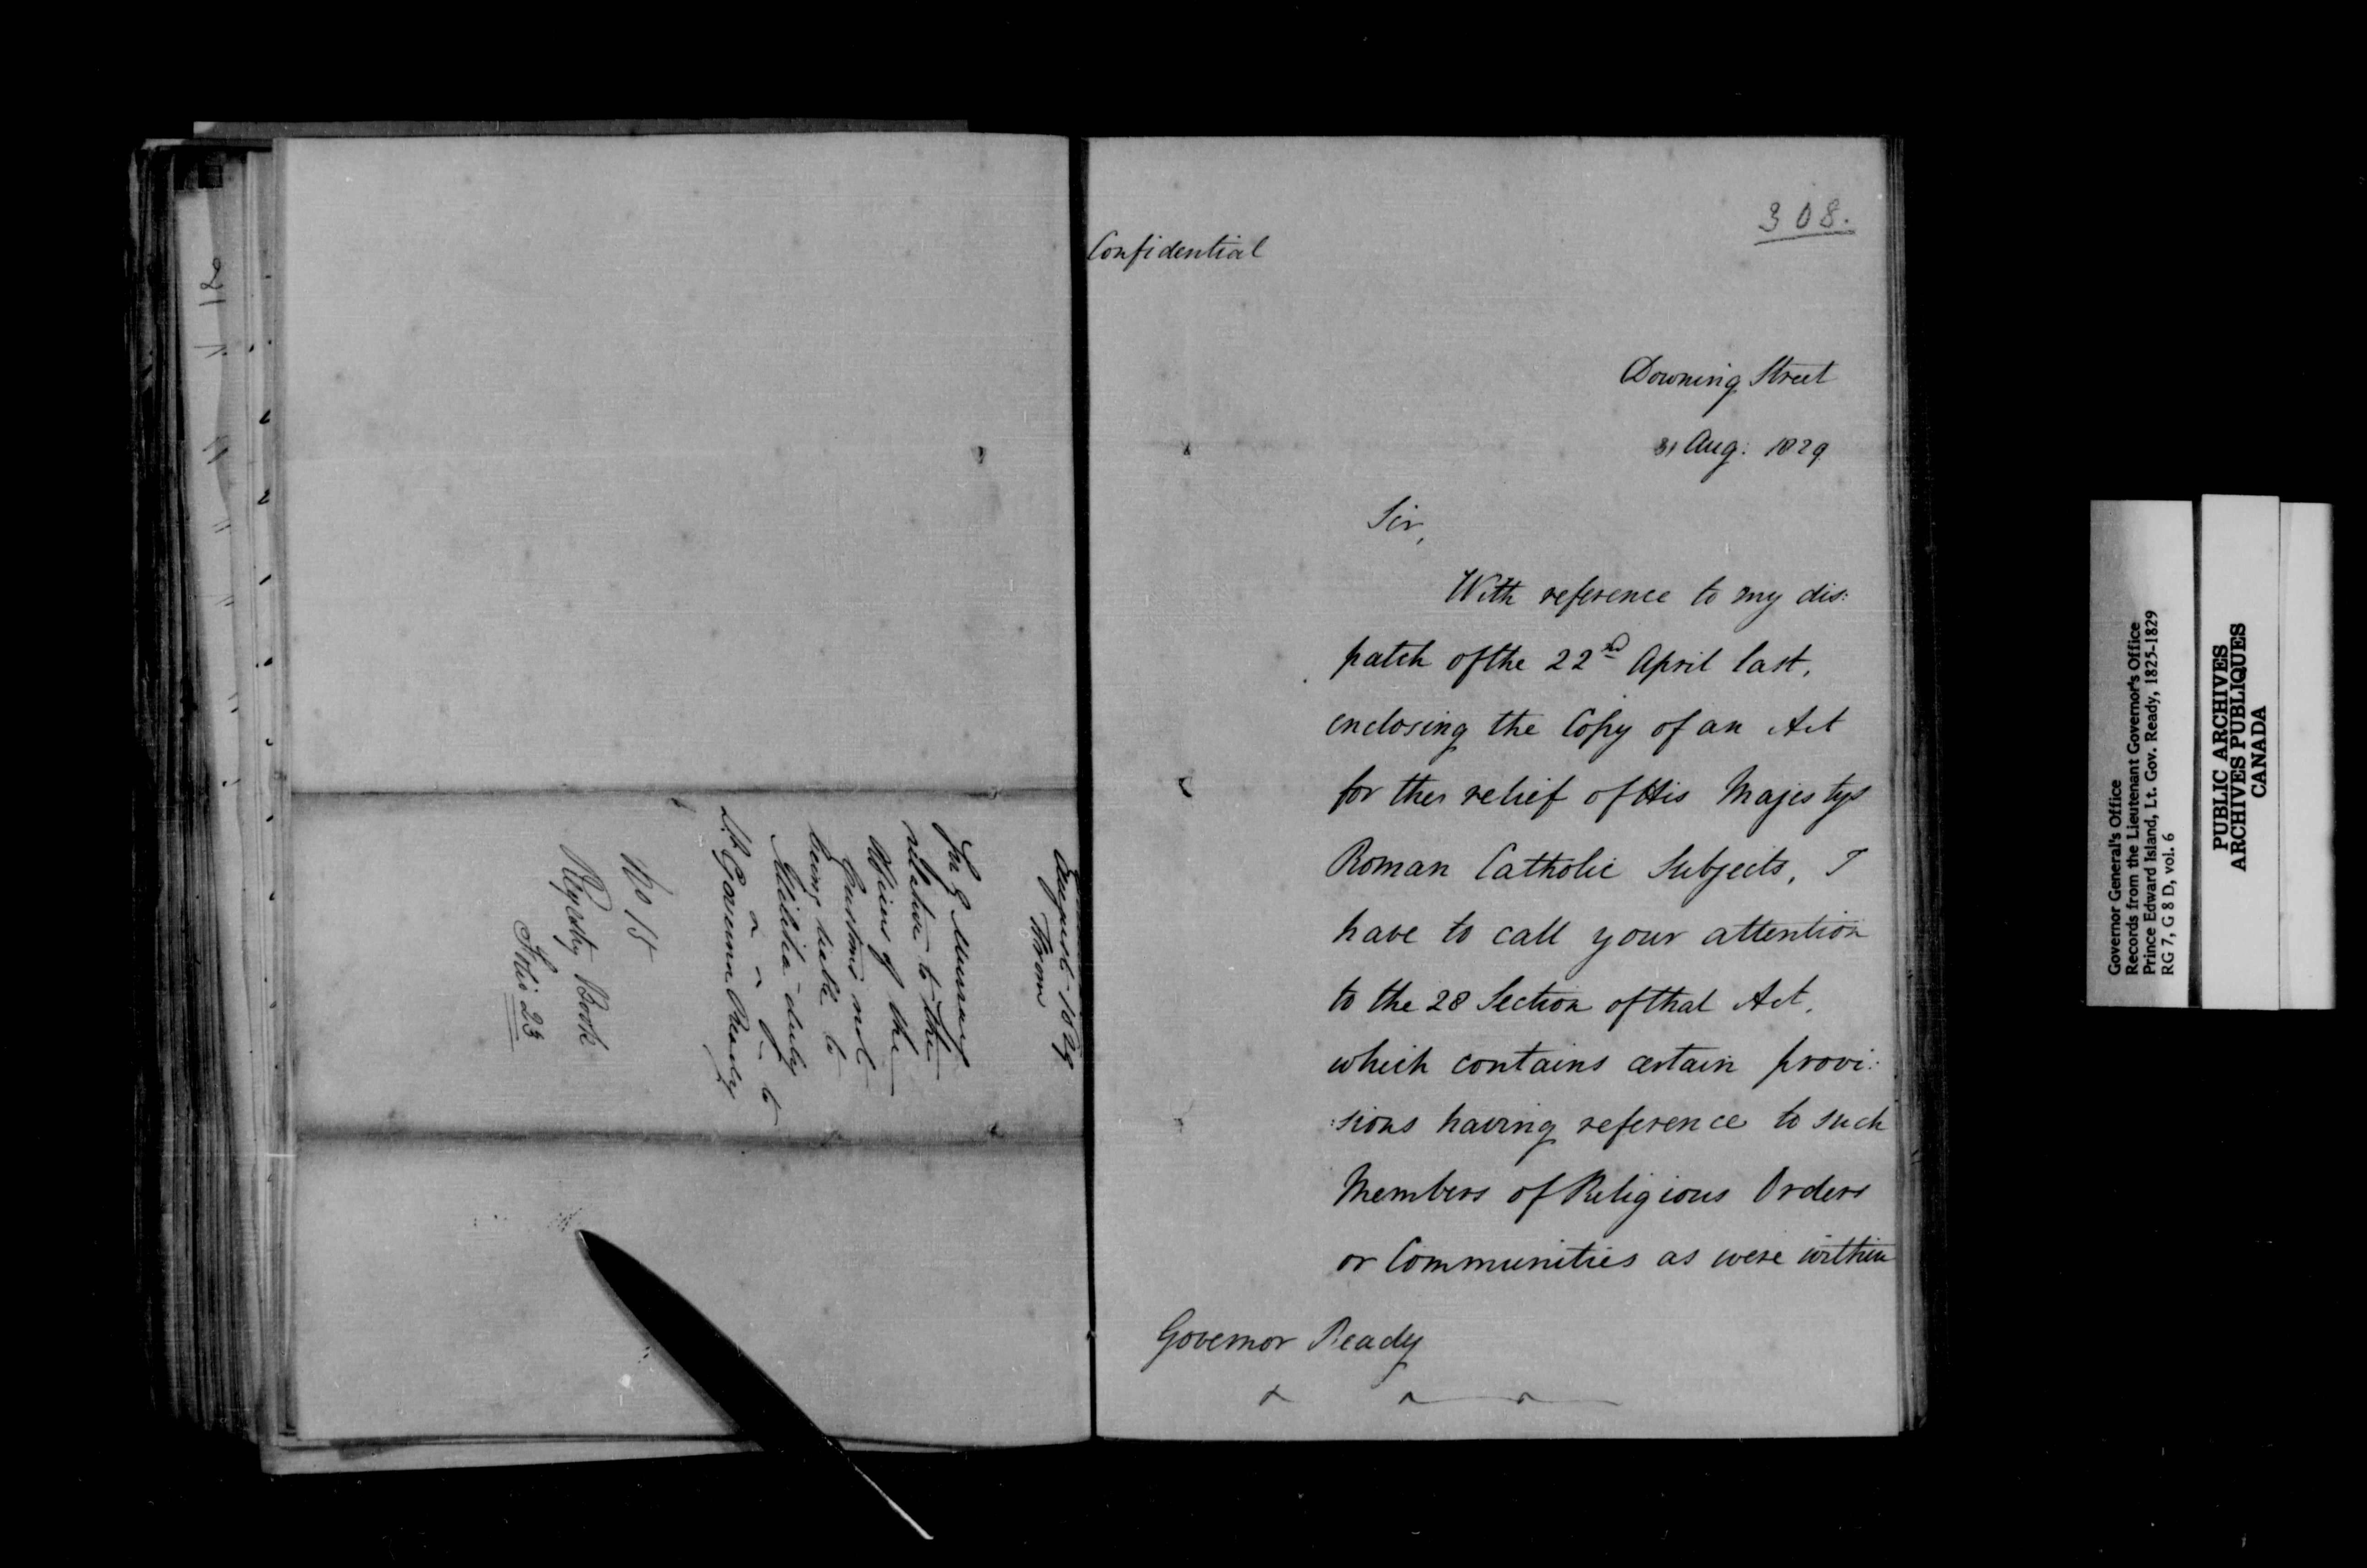 August 1829
From
Sir G Murray
relative to the
Officers of the
Customs not
being liable to
Militia duty
to
Lt. Governor Ready
No 15
Registry Book
Folio 23
308.
Confidential
Downing Street
31 Aug: 1829
Sir,
With reference to my dis:
patch of the 22nd April last,
enclosing the Copy of an Act
for the relief of His Majestys
Roman Catholic Subjects, I
have to call your attention
to the 28 Section of that Act,
which contains certain provi:
:sions having reference to such
Members of Religious Orders
or Communities as were within
Governor Ready
Governor General's Office
Records from the Lieutenant Governor's Office
Prince Edward Island, Lt. Gov. Ready, 1825-1829
RG 7, G 8 D, vol. 6
PUBLIC ARCHIVES
ARCHIVES PUBLIQUES
CANADA